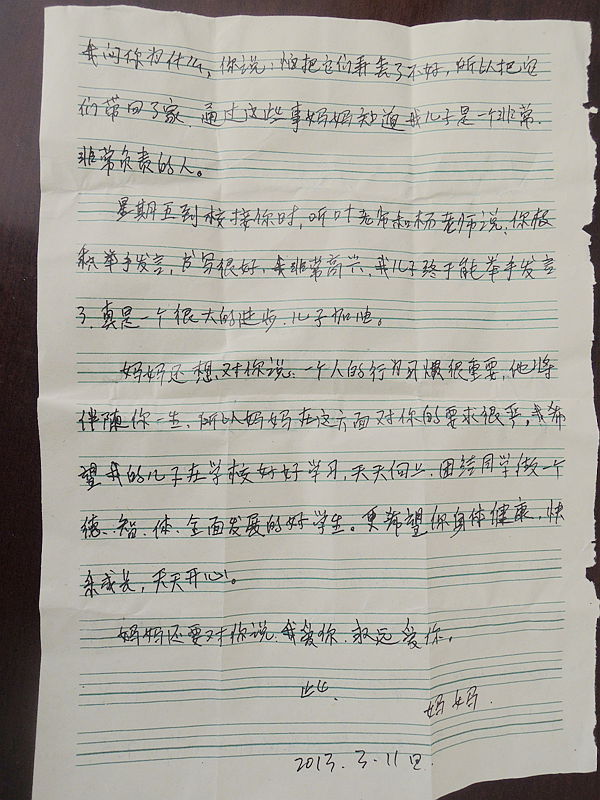 我问你为什么，你说，怕把它们弄丢了不好，所以把它
们带回了家，通过这些事妈妈知道我儿子是一个非常，
非常负责的人。
星期五到校接你时，听叶老师和杨老师说，你积
极举手发言，书写很好，我非常高兴，我儿子终于能举手发言
了，真是一个很大的进步，儿子加油。
妈妈还想对你说：一个人的行为习惯很重要，他将
伴随你一生，所以妈妈在这方面对你的要求很严，我希
望我的儿子在学校好好学习，天天向上，团结同学做一个
德、智、体、全面发展的好学生。更希望你身体健康，快
乐成长，天天开心！。
妈妈还要对你说，我爱你，永远爱你。
此
妈妈.
2013.3.11日